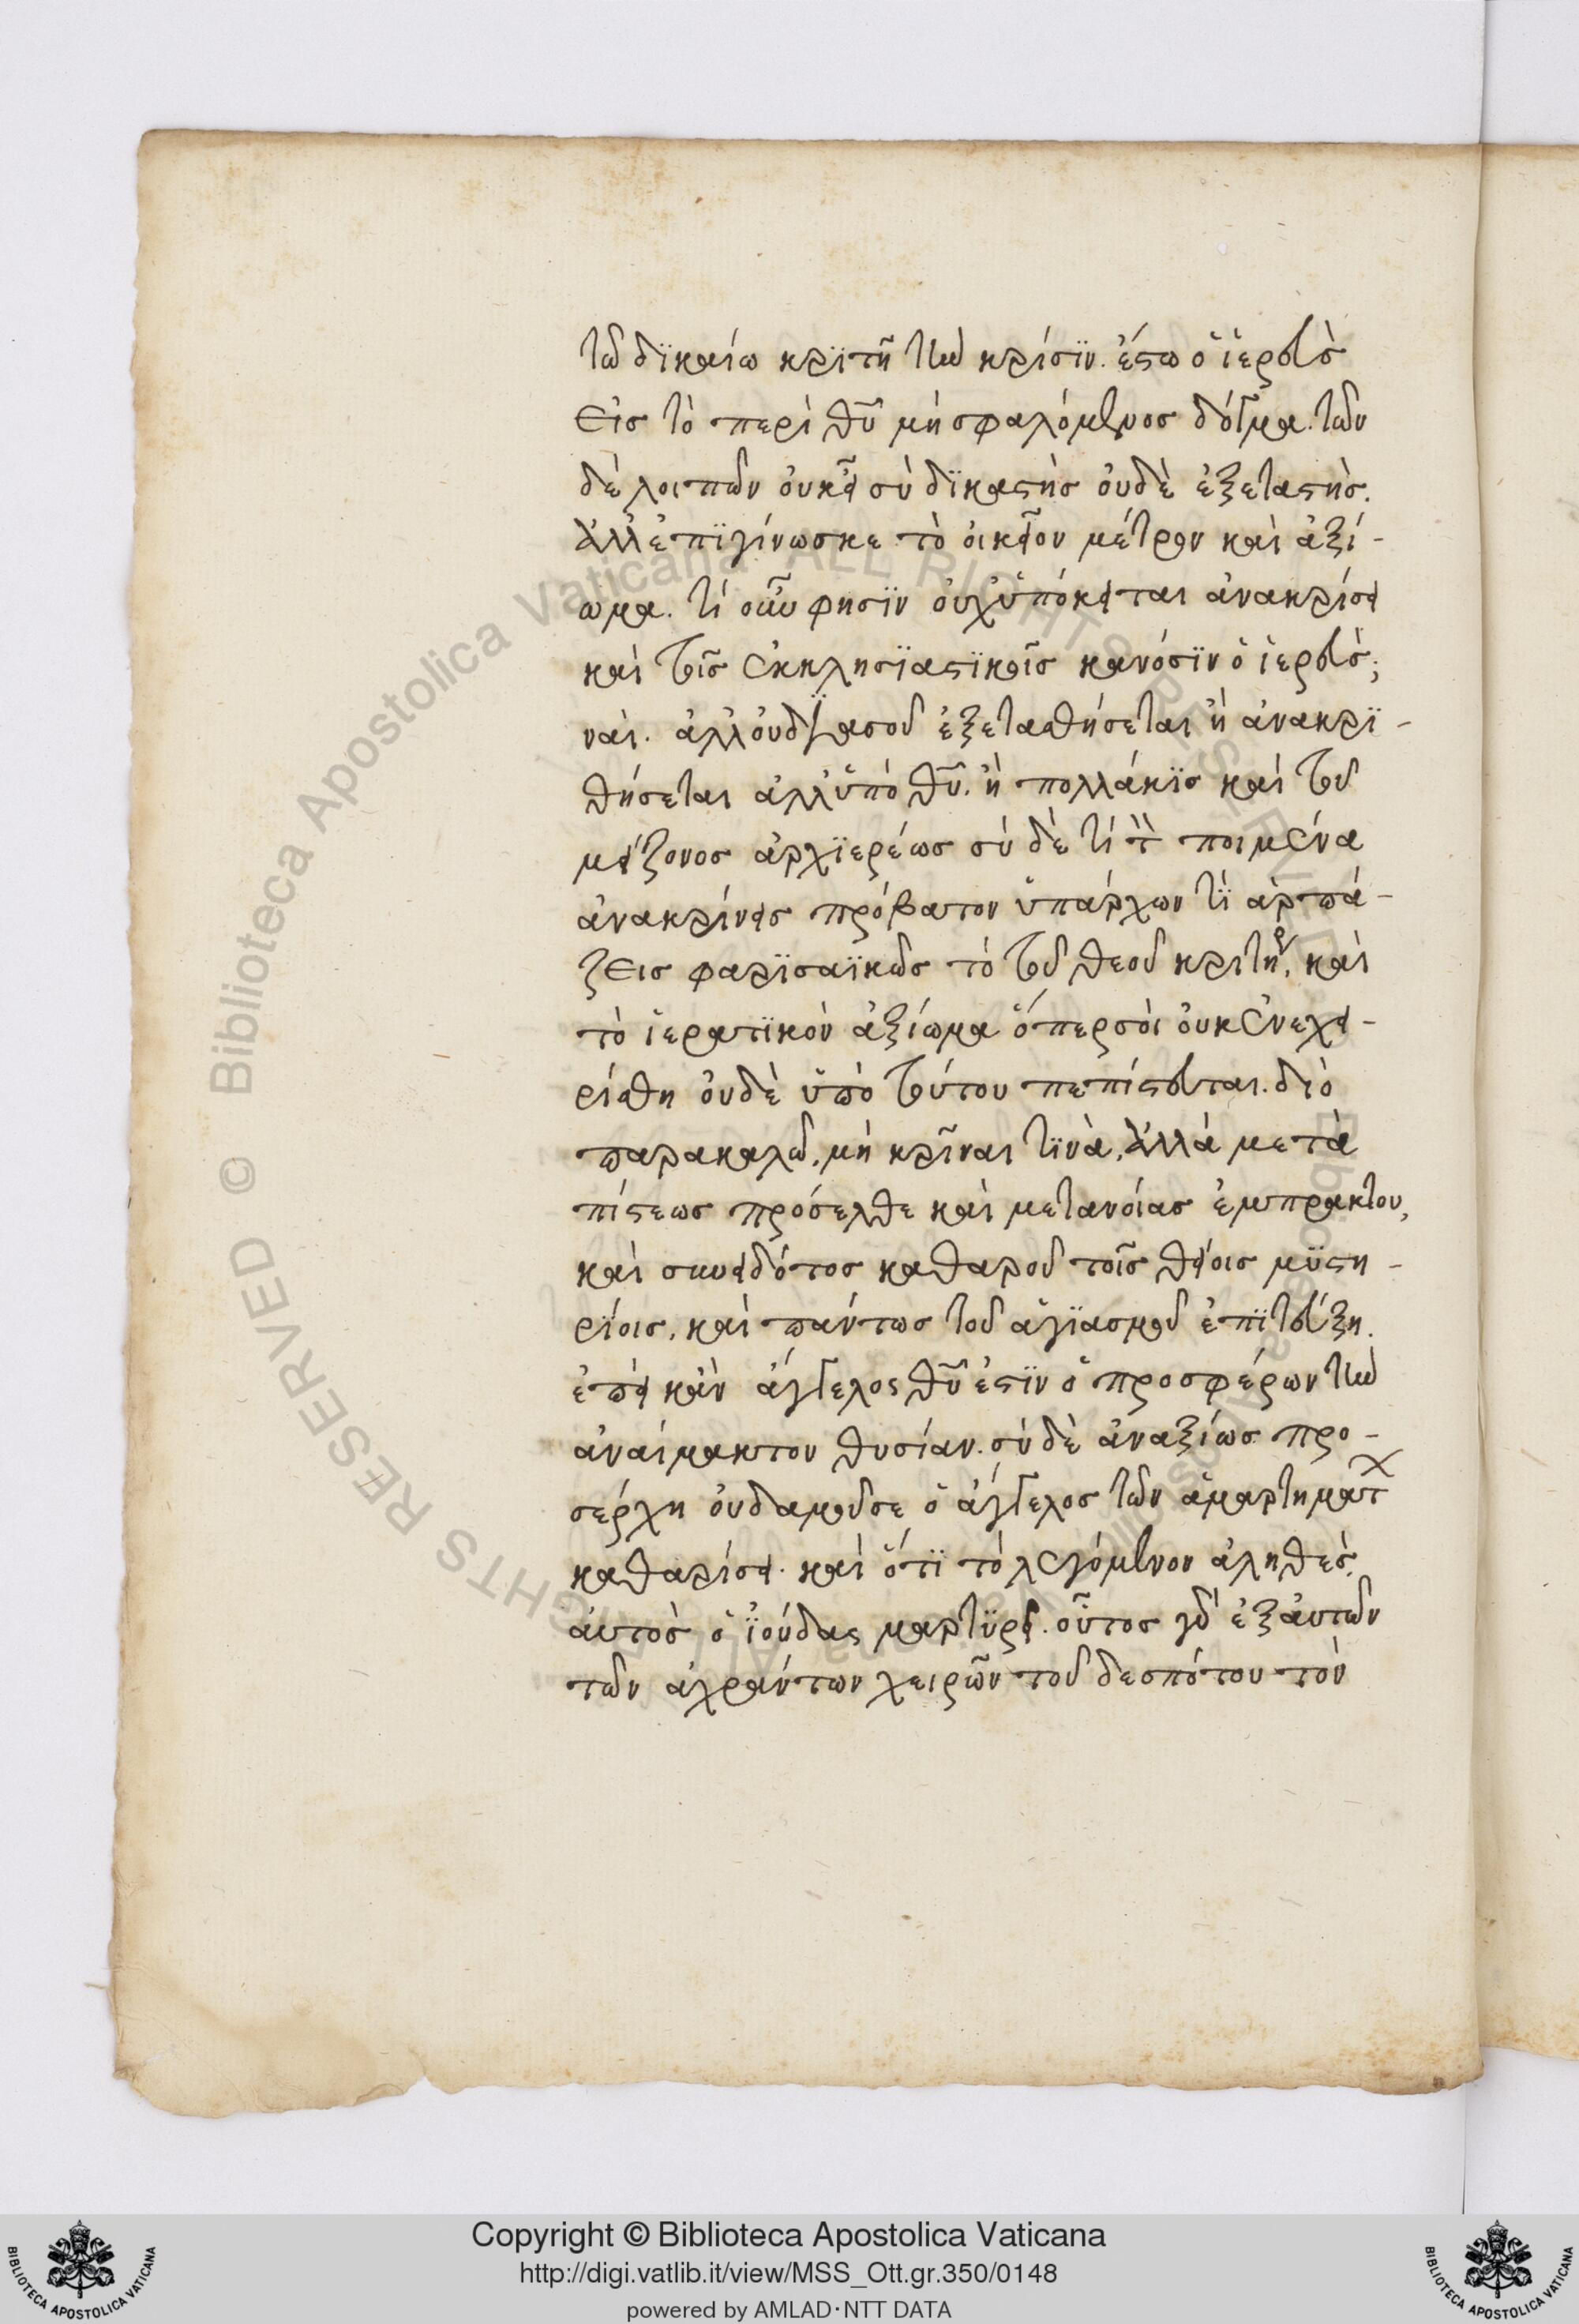 τῶ δϊκαίω κρϊτῆ τὴν κρίσϊν. ἔστω ὁ ἱερεὺσ
εἰσ τὸ περὶ θυ̅ μὴ σφαλόμενοσ δόγμα. τῶν
δὲ λοιπῶν οὐκ εἶ σὺ δϊκαστὴσ οὐδὲ ἐξεταστὴσ.
ἀλλ' ἐπϊγίνωσκε τὸ οἰκεῖον μέτρον καὶ ἀξί-
ωμα. τί οὖν φησϊν οὐχ ὑπόκειται ἀνακρίσει
καὶ τοῖσ ἐκκλησϊαστϊκοῖσ κανόσϊν ὁ ἱερεὺσ;
ναὶ. ἀλλ' οὐδ' ὑπὸ σοῦ ἐξετασθήσεται ἢ ἀνακρϊ-
θήσεται ἀλλ' ὑπὸ θυ̅. ἢ πολλάκϊσ καὶ τοῦ
μείζονοσ ἀρχϊερέωσ σὺ δὲ τί τὸν ποιμένα
ἀνακρίνεισ πρόβατον ὑπάρχων τί ἁρπά-
ζεισ φαρϊσαϊκῶσ τὸ τοῦ θεοῦ κριτήρ, καὶ
τὸ ἱερατϊκὸν ἀξίωμα ὅπερ σὸι οὐκ ἐνεχει-
ρίσθη οὐδὲ ὑπὸ τούτου πεπίστευται. διὸ
παρακαλῶ, μὴ κρῖναι τϊνὰ, ἀλλὰ μετὰ
πίστεωσ πρόσελθε καὶ μετανοίασ ἐμπράκτου,
καὶ συνειδότοσ καθαροῦ τοῖσ θείοισ μϋστη-
ρίοισ, καὶ πάντωσ τοῦ ἁγϊασμοῦ ἐπϊτεύξη.
ἐπεὶ κἂν ἄγγελος θυ̅ ἐστϊν ὁ προσφέρων τὴν
ἀναίμακτον θυσίαν. σὺ δὲ ἀναξίωσ προ-
σέρχη οὐδαμοῦ σε ὁ ἄγγελοσ τῶν ἁμαρτημάτ
καθαρίσει. καὶ ὅτϊ τὸ λεγόμενον ἀληθὲσ,
ἀυτὸσ ὁ ἰούδας μαρτϋρεῖ. οὗτοσ γὰρ ἐξ ἀυτῶν
τῶν ἀχράντων χειρῶν τοῦ δεσπότου τὸν
Copyright © Biblioteca Apostolica Vaticana
http://digi.vatlib.it/view/MSS_Ott.gr.350/0148
powered by AMLAD·NTT DATA